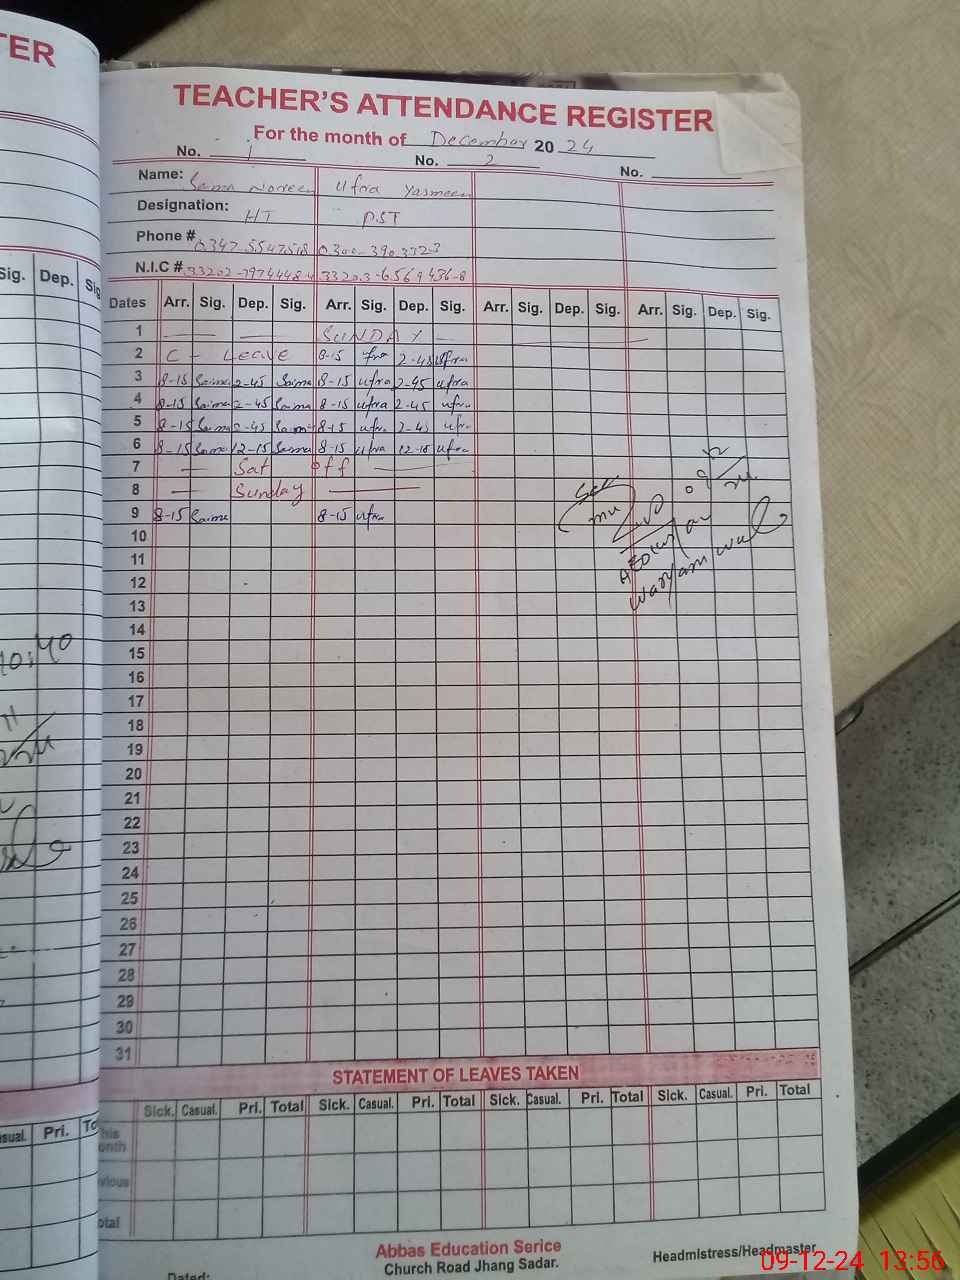 TER
TEACHER'S ATTENDANCE REGISTER
For the month of December 20 24
No. 1 No. 2 No.
Name: Saima Noreen Ufra Yasmeen
Designation: HT PST
Phone #
N.I.C #
Sig. Dep. Sig
Dates Arr. Sig. Dep. Sig. Arr. Sig. Dep. Sig. Arr. Sig. Dep. Sig. Arr. Sig. Dep. Sig.
1 — — SUNDAY —
2 C - Leave 8-15 ufra 2-45 ufra
3 8-15 Saima 2-45 Saima 8-15 ufra 2-45 ufra
4 8-15 Saima 2-45 Saima 8-15 ufra 2-45 ufra
5 8-15 Saima 2-45 Saima 8-15 ufra 2-45 ufra
6 8-15 Saima 12-15 Saima 8-15 ufra 12-15 ufra
7 — Sat off —
8 — Sunday —
9 8-15 Saima 8-15 ufra
10
11
12
13
14
15
16
17
18
19
20
21
22
23
24
25
26
27
28
29
30
31
10:40
STATEMENT OF LEAVES TAKEN
Sick. Casual. Pri. Total Sick. Casual. Pri. Total Sick. Casual. Pri. Total Sick. Casual. Pri. Total
sual. Pri. To
his
onth
vious
otal
Abbas Education Serice
Church Road Jhang Sadar.
Headmistress/Headmaster
Dated:
09-12-24 13:56